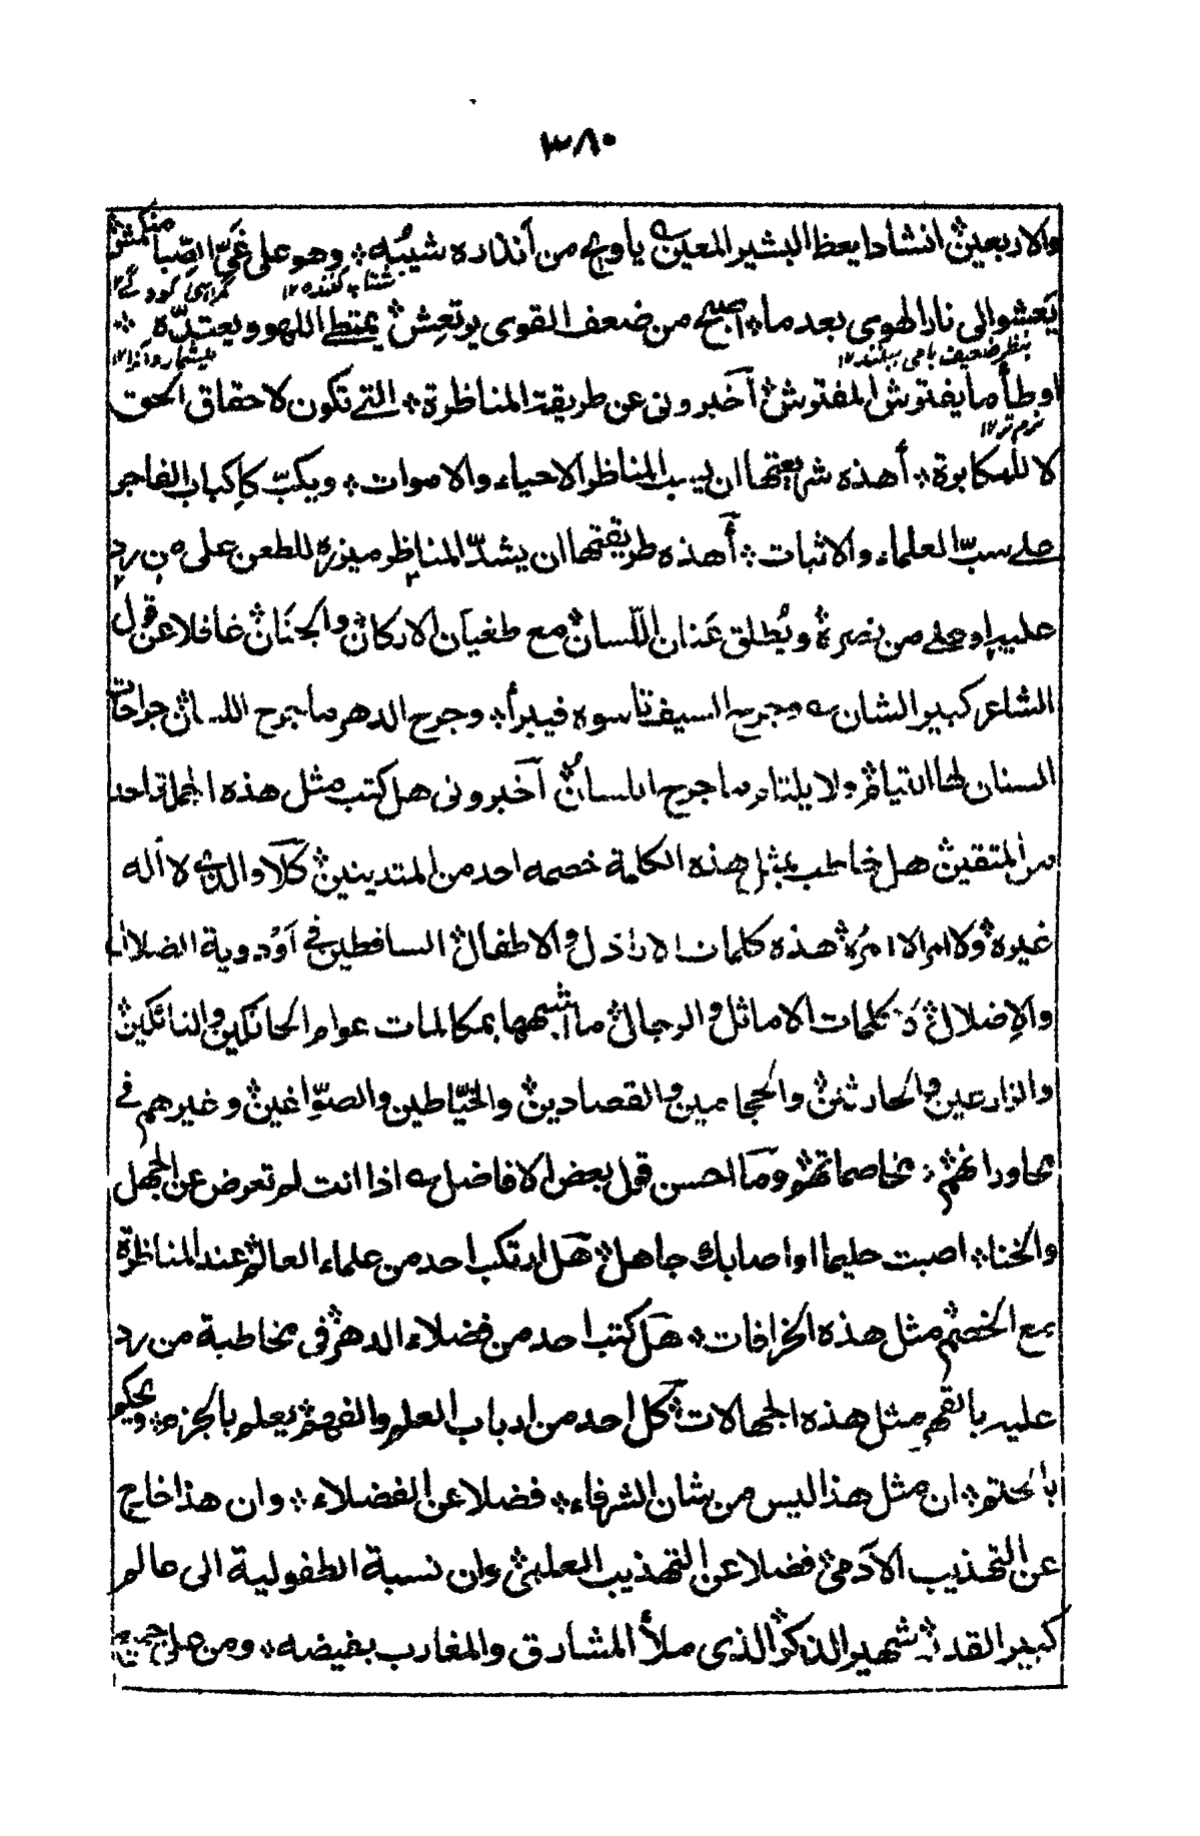 ٣٨٠
والاربعين ۞ انشاد ايعظ البشير المعين ؎ يا ويح من انذاره شيبه ۞ وهو على غيّ الصّبا منكمش
شتاب كننده ١٢ گمراهى كودكے ١٢
يَعشو الى نار الهوى بعد ما ۞ اصبح من ضعف القوى يرتعِش ۞ يمتطى اللهو ويعتدّه ۞
بنظر ضعيف بينند ١٢
اوطأ ما يفترش المفترش ۞ آخبرونى عن طريقة المناظرة ۞ التے تكون لاحقاق الحق
نرم تر ١٢
لا للمكابرة ۞ أهذه شريعتها ان يسب المناظر الاحياء والاموات ۞ ويكبّ كاِكباب الفاجر
علے سبّ العلماء والاثبات ۞ أهذه طريقتها ان يشدّ المناظر ميزره للطعن على من رد
عليه او علے من نصره ۞ ويُطلق عَنان اللّسان ۞ مع طغيان الاركان ۞ والجنَان ۞ غافلا عن قول
الشاعر كبير الشان ؎ وجرح السيف تاسوه فيبرأ ۞ وجرح الدهر ما جرح اللسان ۞ جراحات
السنان لها التيام ۞ ولا يلتام ما جرح اللسان ۞ آخبرونى هل كتب مثل هذه الجملة احد
من المتقين ۞ هل خاطب بمثل هذه الكلمة خصمه احد من المتدينين ۞ كلّا والذى لا أله
غيره ۞ ولا امر الا امرُه ۞ هذه كلمات الاراذل ۞ والاطفال ۞ الساقطين فى اَوْدوية الضلال
والاِضلال ۞ كلمات الاماثل ۞ والرجال ۞ ما اشبهها بمكالمات عوام الحائكين ۞ والنائكين ۞
والزارعين ۞ والحارثين ۞ والحجامين ۞ والقصادين ۞ والخيّاطين والصوّاغين ۞ وغيرهم فے
محاوراتهم ۞ مخاصماتهم ۞ ومآ احسن قول بعض الافاضل ؎ اذا انت لم تعرض عن الجهل
والخنا ۞ اصبت حليما او اصابك جاهل ۞ هَل ارتكب احد من علماء العالم ۞ عند المناظرة
مع الخصم ۞ مثل هذه الخرافات ۞ هَل كتب احد من فضلاء الدهر ۞ فى مخاطبة من رد
عليه بالقهر مثل هذه الجهالات ۞ كل احد من ارباب العلم والفهم ۞ يعلم بالجزم ۞ ويحكم
بالحتم ۞ ان مثل هذا ليس من شان الشرفاء ۞ فضلا عن الفضلاء ۞ وان هذا خارج
عن التهذيب الآدمى ۞ فضلا عن التهذيب العلمى ۞ وان نسبة الطفولية الى عالم
كبير القدر ۞ شهير الذكر ۞ الذى ملأ المشارق والمغارب بفيضه ۞ ومن